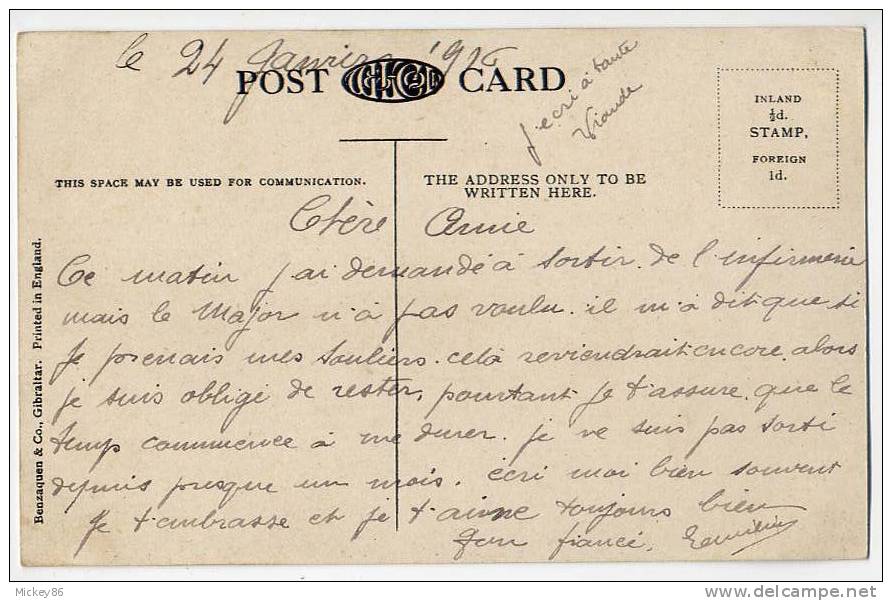 le 24 Janvier 1916
POST CARD
j'ecri à tante
Viande
INLAND
½d.
STAMP,
FOREIGN
1d.
THIS SPACE MAY BE USED FOR COMMUNICATION.
THE ADDRESS ONLY TO BE
WRITTEN HERE.
Benzaquen & Co., Gibraltar. Printed in England.
Chère Amie
Ce matin j'ai demandé à sortir de l'infirmerie
mais le Major n'à pas voulu. il m'à dit que si
je prenais mes souliers. celà reviendrait encore, alors
je suis obligé de rester, pourtant je t'assure que le
temp commence à me durer. je ne suis pas sorti
depuis presque un mois. écri moi bien souvent
Je t'ambrasse et je t'aime toujours bien
Ton fiancé,
Mickey86
www.delcampe.net